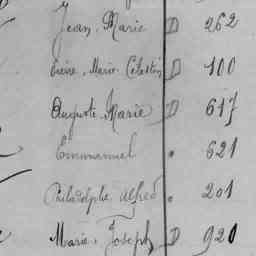 Jean, Marie D 262
Marie Célestin D 100
Auguste, Marie D 617
Emmanuel . 621
Philadelphe Alfred . 201
Marie, Joseph D 920